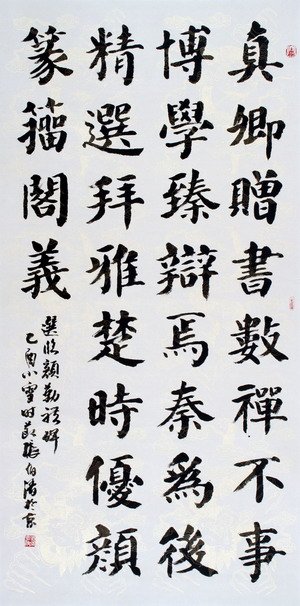 真卿贈書數禪不事
博學臻辯焉秦爲後
精選拜雅楚時優顏
篆籀閣義
選臨顏勤禮碑
乙酉小雪時張伯於京